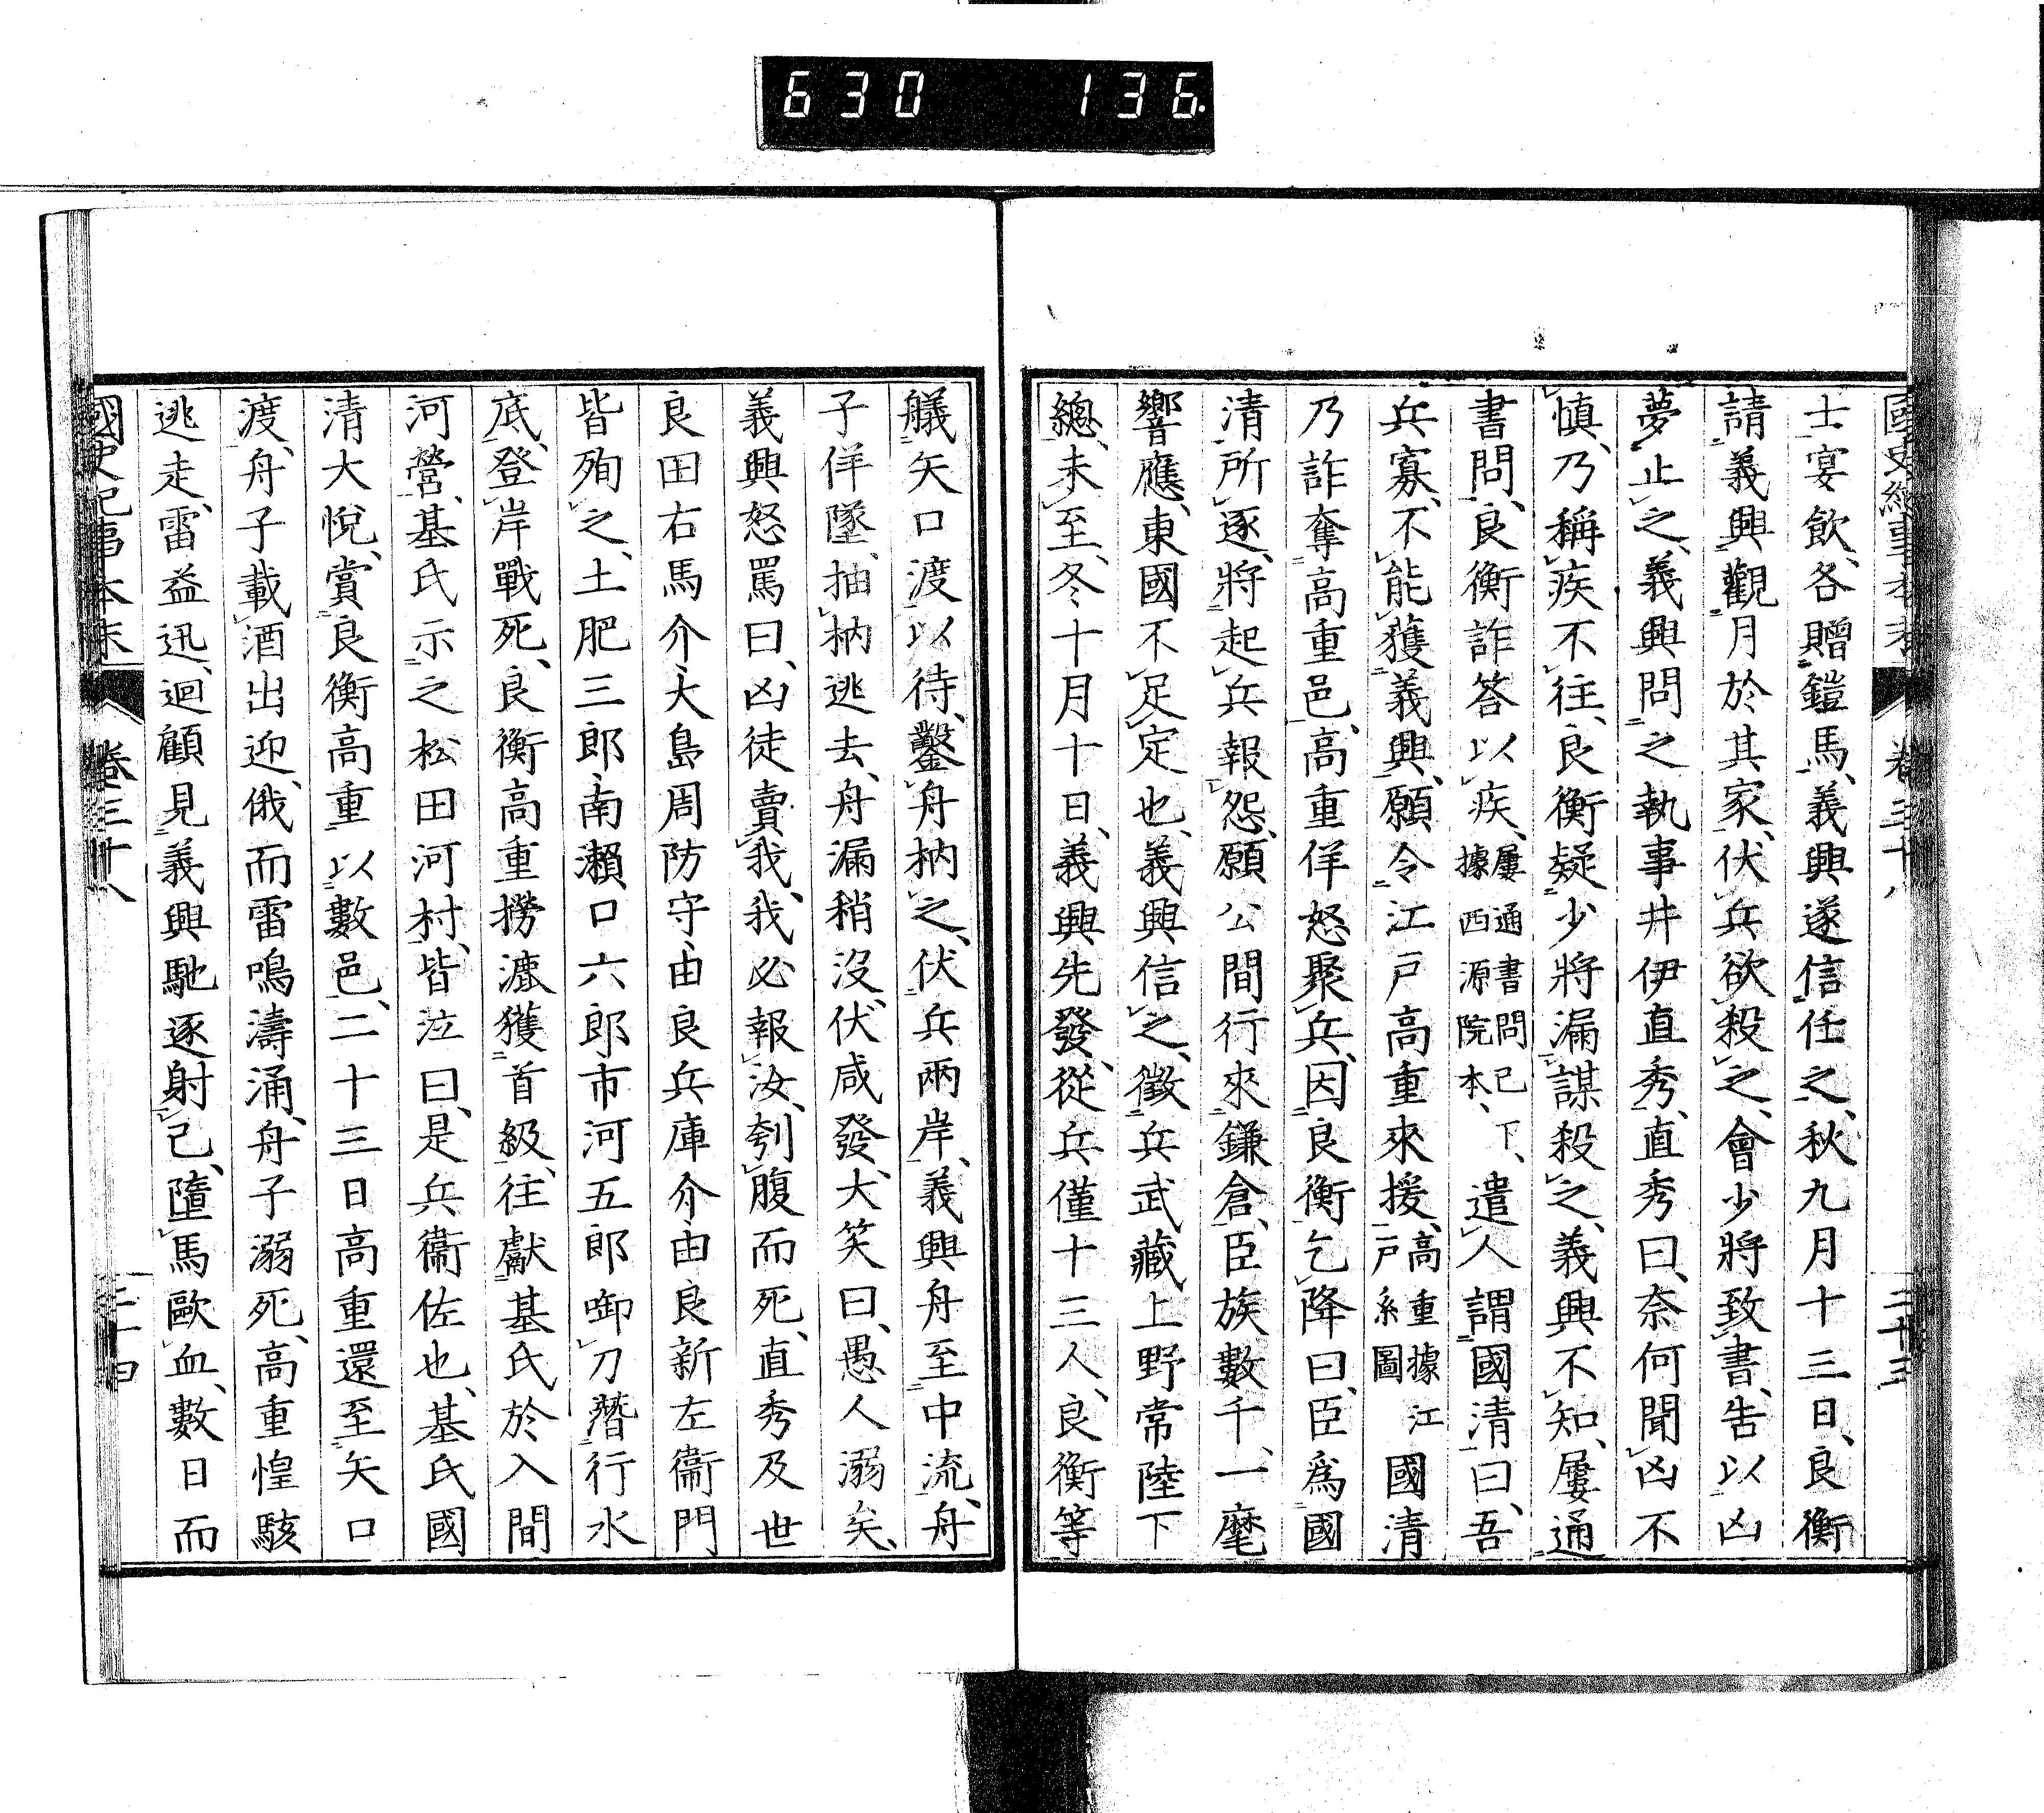 630 136
士宴飲、各贈鎧馬、義興遂信任之、秋九月十三日、良衡
請義興觀月於其家、伏兵欲殺之、會少將致書、告以凶
夢止之、義興問之執事井伊直秀、直秀曰、奈何聞凶不
慎、乃稱疾不往、良衡疑少將漏謀殺之、義興不知、屢通
書問、良衡詐答以疾、屢通書問已下、據西源院本、遣人謂國清曰、吾
兵寡、不能獲義興、願令江戸高重來援、高重據江戸系圖國清
乃詐奪高重邑、高重佯怒聚兵、因良衡乞降曰、臣爲國
清所逐、將起兵報怨、願公間行來鎌倉、臣族數千、一麾
響應、東國不足定也、義興信之、徵兵武藏上野常陸下
總、未至、冬十月十日、義興先發、從兵僅十三人、良衡等
艤矢口渡以待、鑿舟枘之、伏兵兩岸、義興舟至中流、舟
子佯墜、抽枘逃去、舟漏稍沒、伏咸發、大笑曰、愚人溺矣、
義興怒罵曰、凶徒賣我、我必報汝、刳腹而死、直秀及世
良田右馬介大島周防守由良兵庫介由良新左衞門
皆殉之、土肥三郎南瀬口六郎市河五郎啣刀潛行水
底、登岸戰死、良衡高重撈漉獲首級、往獻基氏於入間
河營、基氏示之松田河村、皆泣曰、是兵衞佐也、基氏國
清大悅、賞良衡高重以數邑、二十三日高重還至矢口
渡、舟子載酒出迎、俄而雷鳴濤涌、舟子溺死、高重惶駭
逃走、雷益迅、迴顧見義興馳逐射己、墮馬歐血、數日而
國史紀事本末 卷三十八 二十四